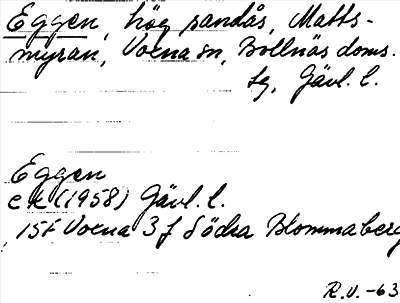 Eggen, hög sandås, Matts-
myran, Voxna sn, Bollnäs doms.
sg, Gävl. l.
Eggen
ek (1958) Gävl. l.
15F Voxna 3 f Södra Blommaberg
R.V. -63